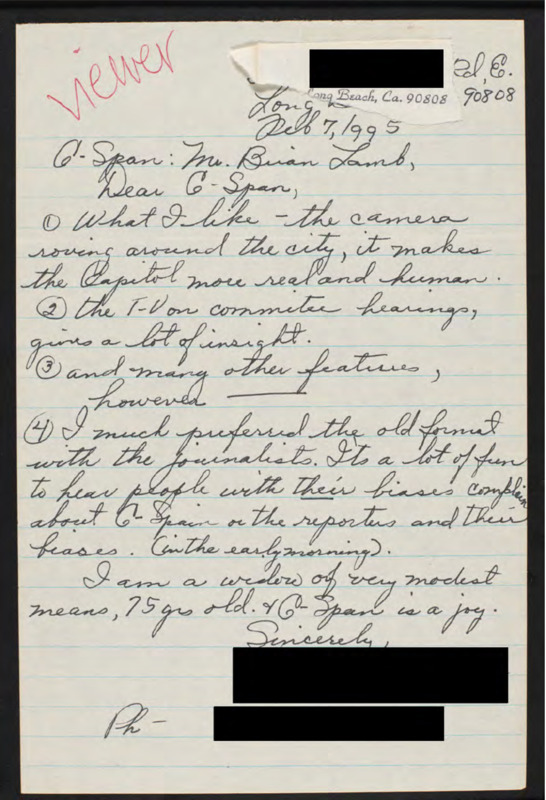 viewer
Rd, E.
Long Beach, Ca. 90808 90808
Long
Feb 7, 1995
C-Span: Mr. Brian Lamb,
Dear C-Span,
① What I like - the camera
roving around the city, it makes
the Capitol more real and human.
② the T-V on commitee hearings,
gives a lot of insight.
③ and many other features,
however
④ I much preferred the old format
with the journalists. Its a lot of fun
to hear people with their biases complain
about C-Span or the reporters and their
biases. (in the early morning).
I am a widow of very modest
means, 75 yrs old. & C-Span is a joy.
Sincerely,
Ph -